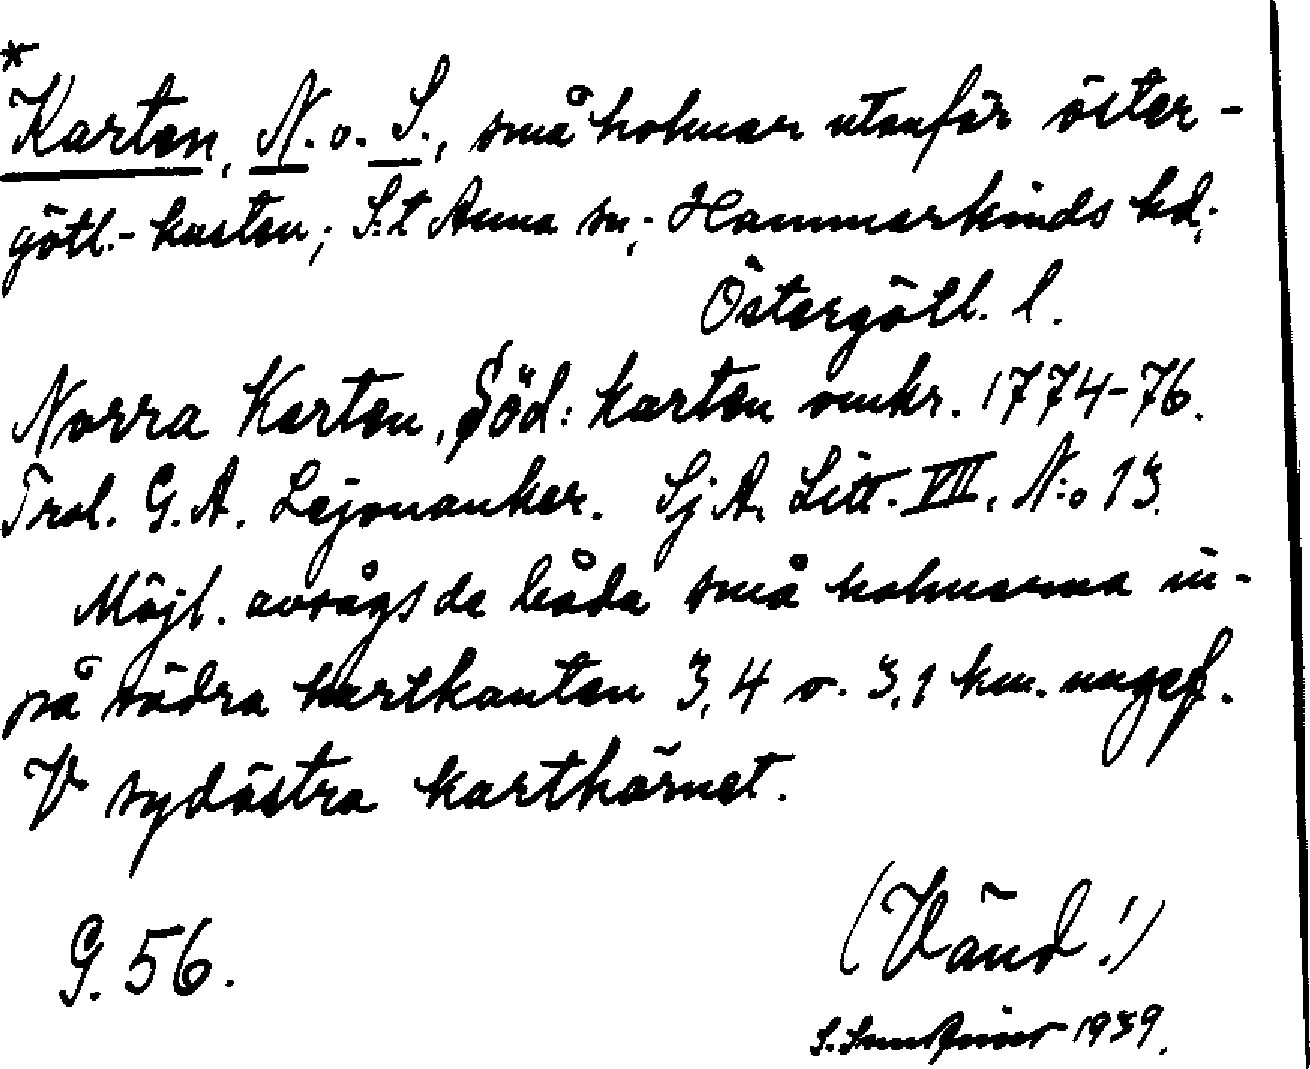 *
Karten, N. o. S., små holmar utanför öster-
götl.- kusten; S:t Anna sn; Hammarkinds hd;
Östergötl. l.
Norra Karten, Söd: Karten omkr. 1774-76.
Trol. G. A. Lejonanker. Sj A, Litt. VII. N:o 13.
Möjl. avsågs de båda små holmarna in-
på södra kartkanten 3,4 o. 3,1 km. ungef.
V sydöstra karthörnet.
(Vänd!)
G. 56.
S. 1939.